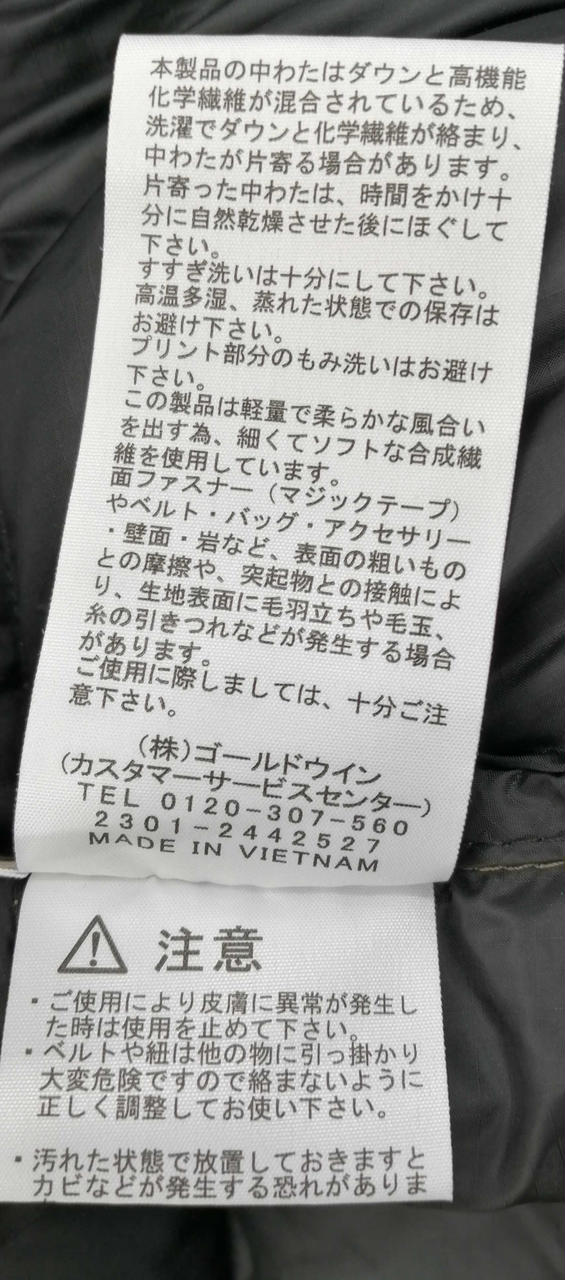 本製品の中わたはダウンと高機能
化学繊維が混合されているため、
洗濯でダウンと化学繊維が絡まり、
中わたが片寄る場合があります。
片寄った中わたは、時間をかけ十
分に自然乾燥させた後にほぐして
下さい。
すすぎ洗いは十分にして下さい。
高温多湿、蒸れた状態での保存は
お避け下さい。
プリント部分のもみ洗いはお避け
下さい。
この製品は軽量で柔らかな風合い
を出す為、細くてソフトな合成繊
維を使用しています。
面ファスナー（マジックテープ）
やベルト・バッグ・アクセサリー
・壁面・岩など、表面の粗いもの
との摩擦や、突起物との接触によ
り、生地表面に毛羽立ちや毛玉、
糸の引きつれなどが発生する場合
があります。
ご使用に際しましては、十分ご注
意下さい。
(株)ゴールドウイン
(カスタマーサービスセンター)
TEL 0120-307-560
2301-2442527
MADE IN VIETNAM
注意
・ご使用により皮膚に異常が発生し
た時は使用を止めて下さい。
・ベルトや紐は他の物に引っ掛かり
大変危険ですので絡まないように
正しく調整してお使い下さい。
・汚れた状態で放置しておきますと
カビなどが発生する恐れがありま